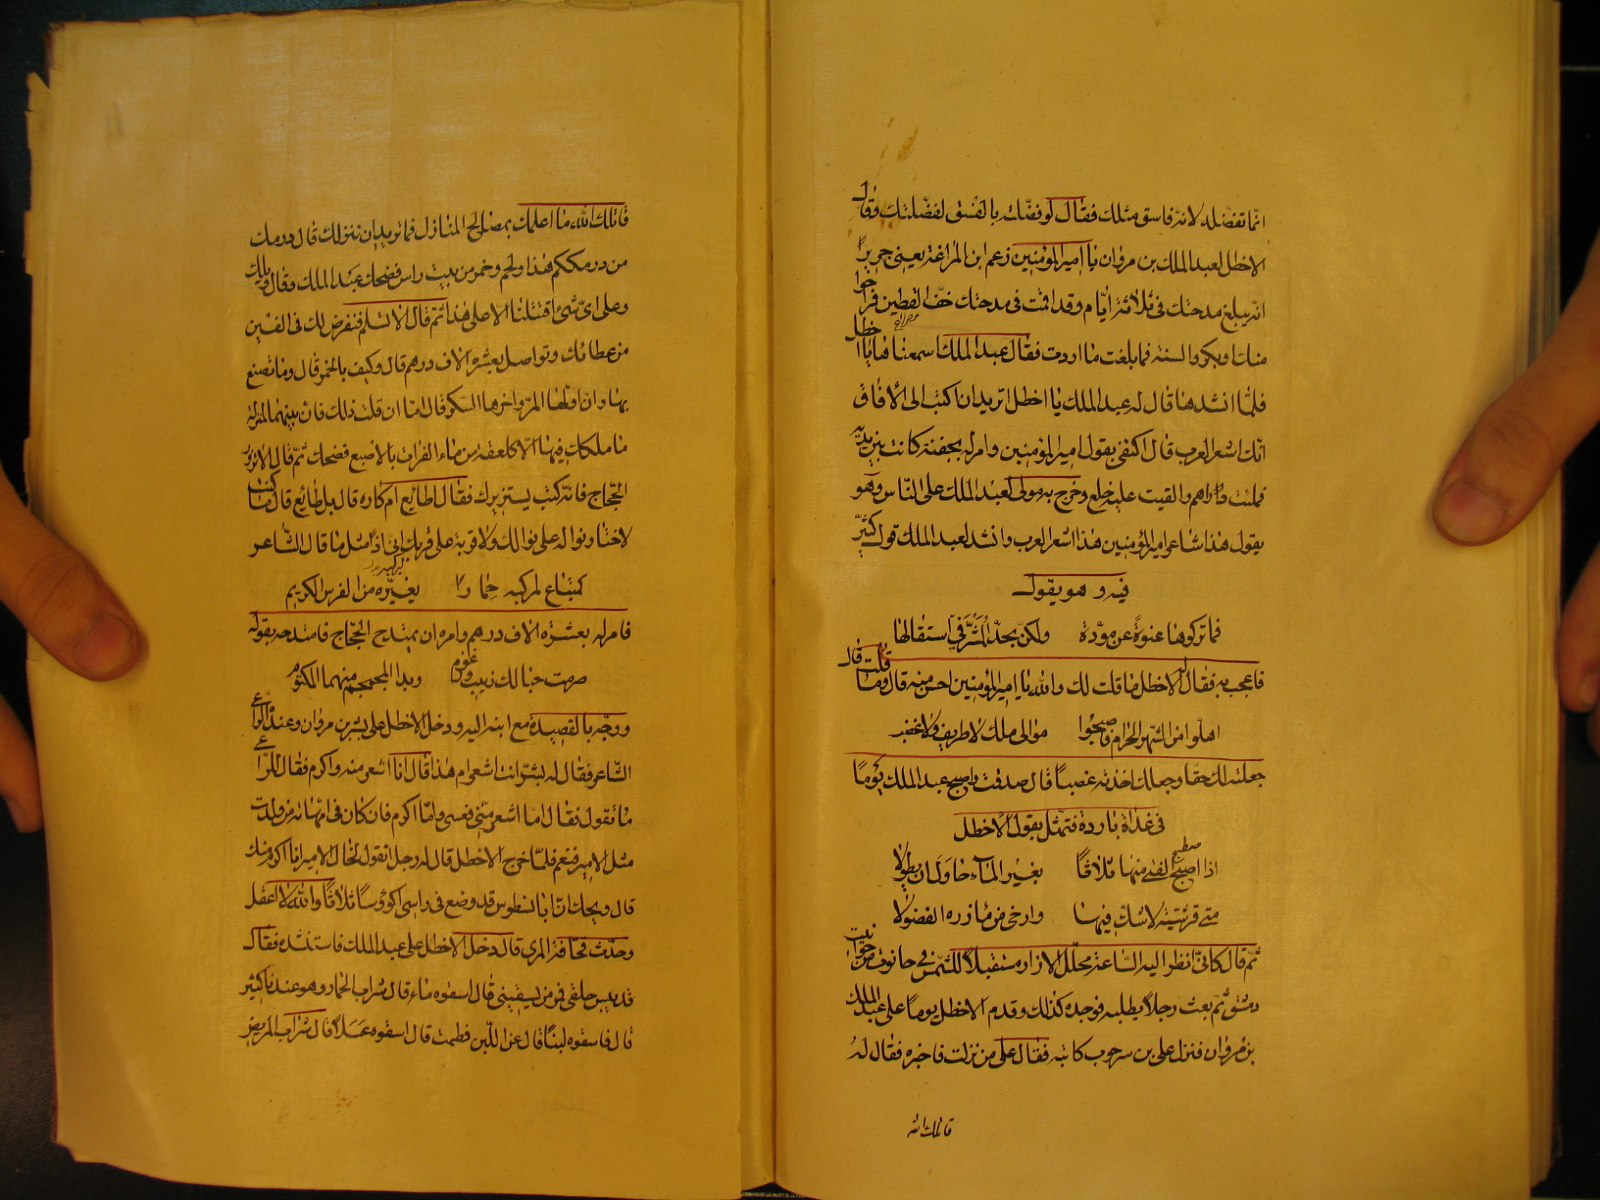 انما تفضله لانه فاسق مثلك فقال لو فضلته بالفسق لفضلتك وقال
الاخطل لعبد الملك بن مروان يا امير المؤمنين زعم ابن المراغة يعني جريرا
انه يبلغ مدحتك في ثلاثة ايام وقد اقمت في مدحتك خف القطين فراحوا
منك او بكروا السنة فما بلغت ما اردت فقال عبد الملك اسمعناها يا اخطل
فلما انشدها قال له عبد الملك يا اخطل اتريد ان اكتب الى الافاق
انك اشعر العرب قال اكتفي بقول امير المؤمنين وامر له بجفنة كانت بين يديه
فملئت دراهم والقيت عليه خلع وخرج به مولى لعبد الملك على الناس وهو
يقول هذا شاعر امير المؤمنين هذا اشعر العرب وانشد لعبد الملك قول كثير
فيه وهو يقول
فما تركوها عنوة عن مودة ولكن بحد المشرفي استقالها
فاعجب به فقال له الاخطل ما قلت لك والله يا امير المؤمنين احسن منه قال وما قلت قال
اهلوا من الشهر الحرام فاصبحوا موالي ملك لا طريف ولا غضب
جعلته لك حقا وجعلك اخذته غصبا قال صدقت واصبح عبد الملك يوما
في غداة باردة فتمثل بقول الاخطل
اذا اصطبح الفتى منها ثلاثا بغير الماء حاول ان يطولا
مشى قرشية لا شك فيها وارخى من مازره الفضولا
ثم قال كاني انظر اليه الساعة محلل الازار مستقبلا للشمس في حانوت من حوانيت
دمشق ثم بعث رجلا يطلبه فوجده كذلك وقدم الاخطل يوما على عبد الملك
بن مروان فنزل على بن سرحوب كاتبه فقال على من نزلت فاخبره فقال له
قاتلك الله
قاتلك الله ما اعلمك بصالح المنازل فما تريد ان ننزلك قال درمك
من درمككم هذا ولحم وخمر من بيت راس فضحك عبد الملك وقال ويلك
وعلى اي شئ اقتتلنا الا على هذا ثم قال الا تسلم فنفرض لك في الفين
من عطائك وتواصل بعشرة الاف درهم قال وكيف بالخمر قال وما تصنع
بها وان اولها المر واخرها السكر قال اما ان قلت ذلك فان بينهما لمنزلة
ما ملكك فيها الا كلعقة من ماء الفرات بالاصبع فضحك ثم قال الا تزور
الحجاج فانه كتب يستزيرك فقال اطائع ام كاره قال بل طائع قال ما كنت
لاختار نواله على نوالك ولا قربه على قربك اني اذا مثل ما قال الشاعر
كمبتاع لمركبه حمارا يغيره من الفرس الكريم
فامر له بعشرة الاف درهم وامره ان يمتدح الحجاج فامتدحه بقوله
صرمت حبالك زينب ورعوم وبدا المجمجم منهما المكتوم
ووجه بالقصيدة مع ابنه اليه ودخل الاخطل على بشر بن مروان وعنده الراعي
الشاعر فقال له بشر انت اشعر ام هذا قال انا اشعر منه واكرم فقال للراعي
ما تقول فقال اما اشعر مني فعسى واما اكرم فان كان في امهاته من ولدت
مثل الامير فنعم فلما خرج الاخطل قال له رجل اتقول لخال الامير انا اكرم منك
قال ويحك ان ابا نسطوس قد وضع في راسي اكؤسا ثلاثا والله لا اعقل
وحدث قحافة المري قال دخل الاخطل على عبد الملك فاستنشده فقال
قد يبس حلقي فمر من يسقيني قال اسقوه ماء قال شراب الحمار وهو عندنا كثير
قال فاسقوه لبنا قال عن اللبن فطمت قال اسقوه عسلا قال شراب المريض